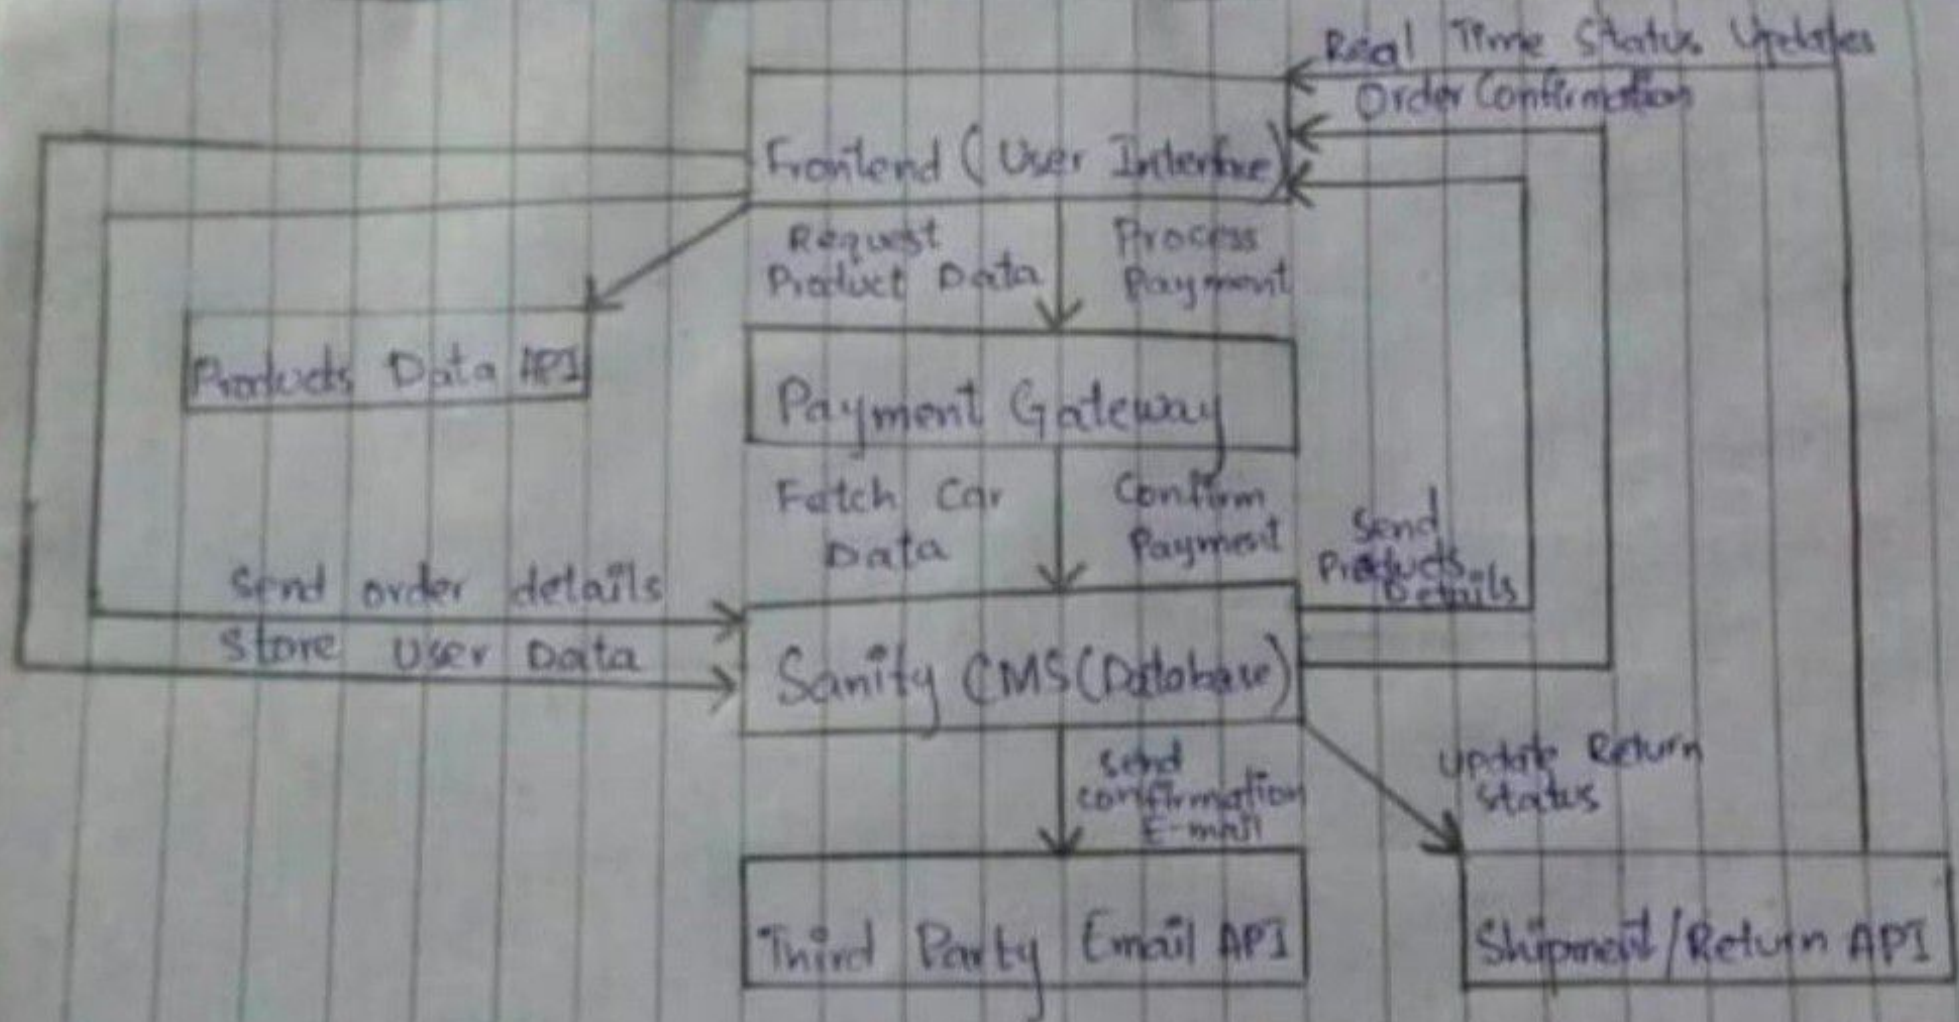 Real Time Status Updates
Order Confirmation
Frontend (User Interface)
Request
Product Data
Process
Payment
Products Data API
Payment Gateway
Fetch Car
Data
Confirm
Payment
Send
Products
Details
Send order details
Store User Data
Sanity CMS (Database)
Send
confirmation
E-mail
Update Return
Status
Third Party Email API
Shipment/Return API